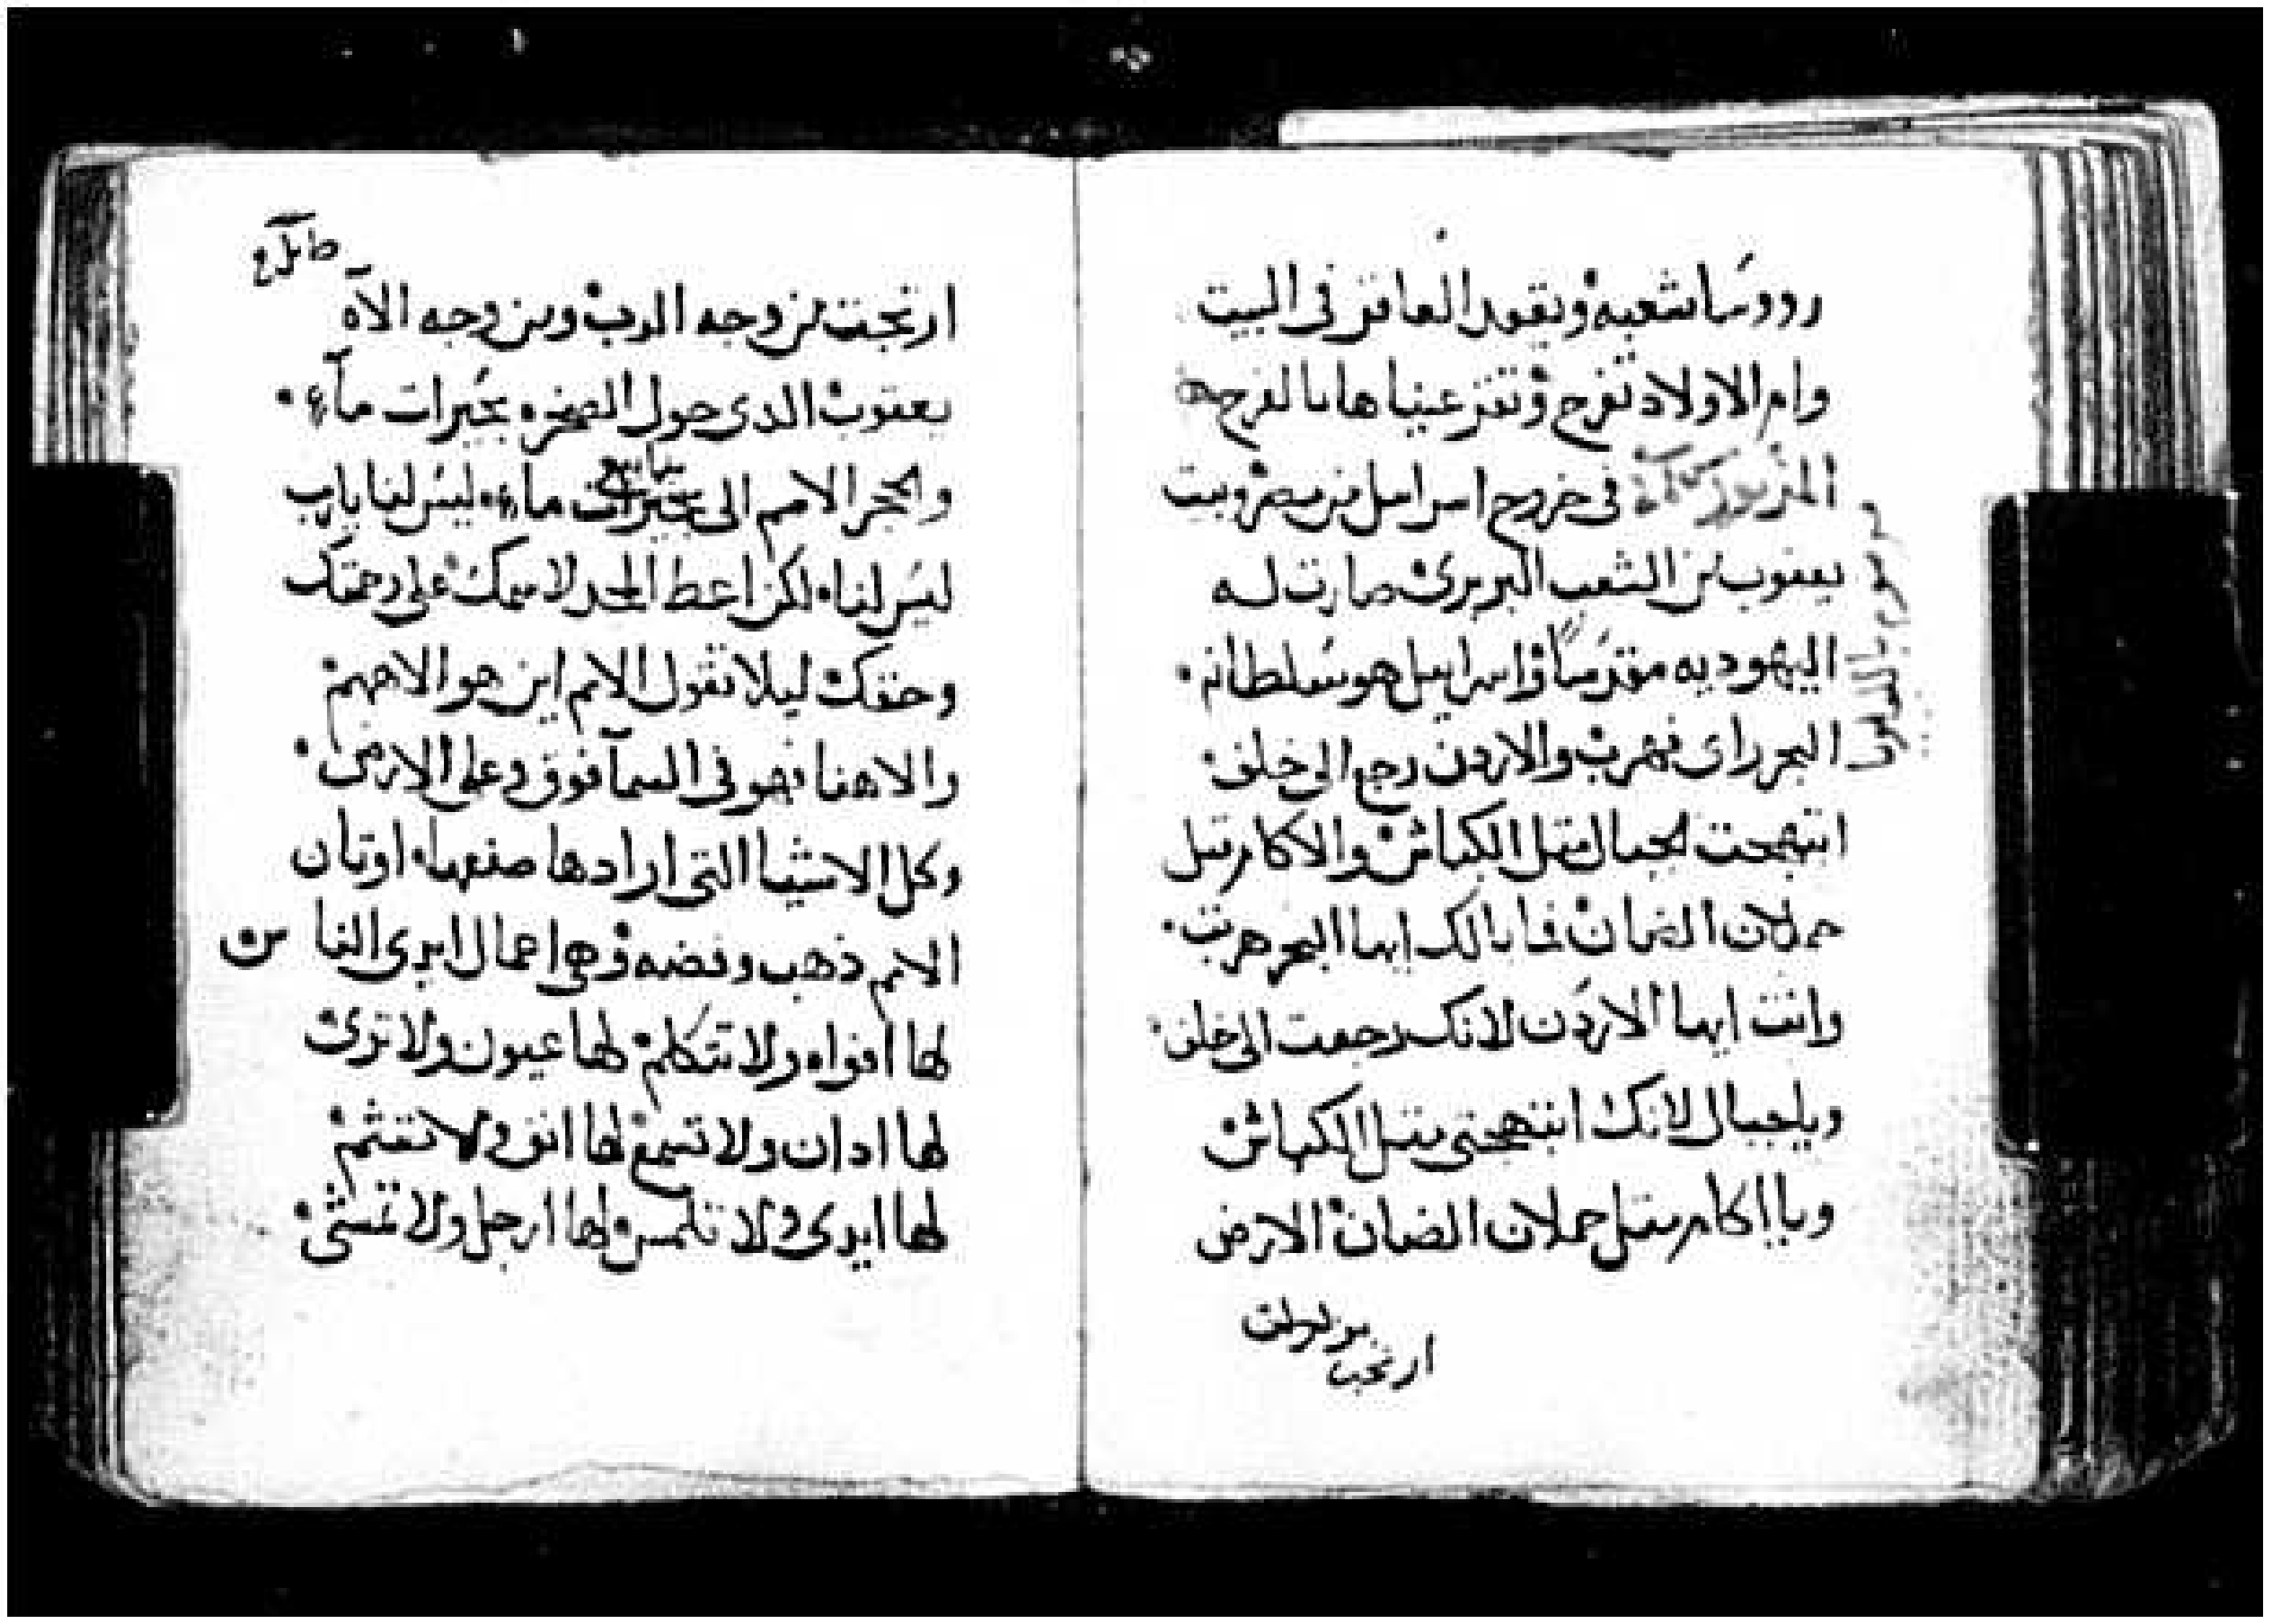 رووسا شعبه ويقود العاقر فى البيت
وام الاولاد تفرح وتقر عيناها بالفرح
المزمور فى خروج اسراييل من مصر وبيت
يعقوب من الشعب البربرى صارت له
اليهوديه مقدسًا واسراييل هو سلطانه
البحر راى فهرب والاردن رجع الى خلف
ابتهجت الجبال متل الكباش والاكام متل
حملان الضان فما بالك ايها البحر هربت
وانت ايها الاردن لانك رجعت الى خلف
ويا جبال لانك ابتهجتى متل الكباش
ويا اكام متل حملان الضان الارض
ارتجت
ارتجت من وجه الرب ومن وجه الاه
يعقوب الدى حول الصخره بحيرات مآء
والحجر الاصم الى ينابيع ماء ليس لنا يارب
ليس لنا لكن اعط المجد لاسمك على رحمتك
وحقك ليلا تقول الامم اين هو الاههم
والاهنا فهو فى السمآ فوق وعلى الارض
وكل الاشيا التى ارادها صنعها اوتان
الامم ذهب وفضه وهى اعمال ايدى الناس
لها افواه ولا تتكلم لها عيون ولا ترى
لها ادان ولا تسمع لها انف ولا تشتم
لها ايدى ولا تلمس لها ارجل ولا تمشى